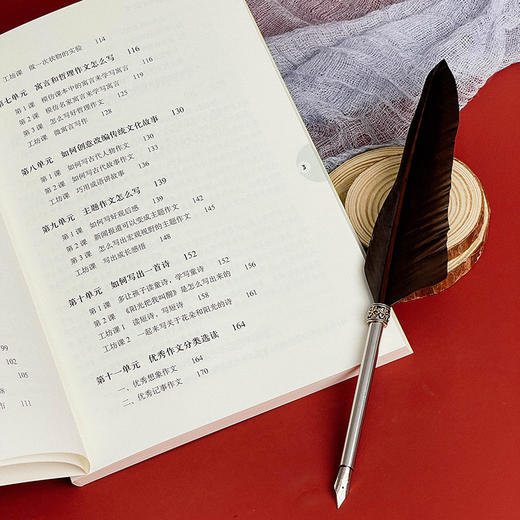 工坊课 做一次状物的实验 114
第七单元 寓言和哲理作文怎么写 116
第1课 模仿课本中的寓言来学写寓言 116
第2课 模仿名家寓言来学写寓言 119
第3课 怎么写好哲理作文 125
工坊课 微寓言写作 128
第八单元 如何创意改编传统文化故事 130
第1课 如何写古代人物作文 130
第2课 如何写古代故事作文 133
工坊课 巧用成语讲故事 136
第九单元 主题作文怎么写 139
第1课 如何写好观后感 139
第2课 新闻报道可以变成主题作文 142
第3课 怎么写出宏观视野的主题作文 145
工坊课 写出成长感悟 148
第十单元 如何写出一首诗 152
第1课 多让孩子读童诗，学写童诗 152
第2课 《阳光把我叫醒》是怎么写出来的 156
工坊课1 读短诗，写短诗 158
工坊课2 一起来写关于花朵和阳光的诗 161
第十一单元 优秀作文分类选读 164
一、优秀想象作文 164
二、优秀记事作文 170
3
99
105
105
111